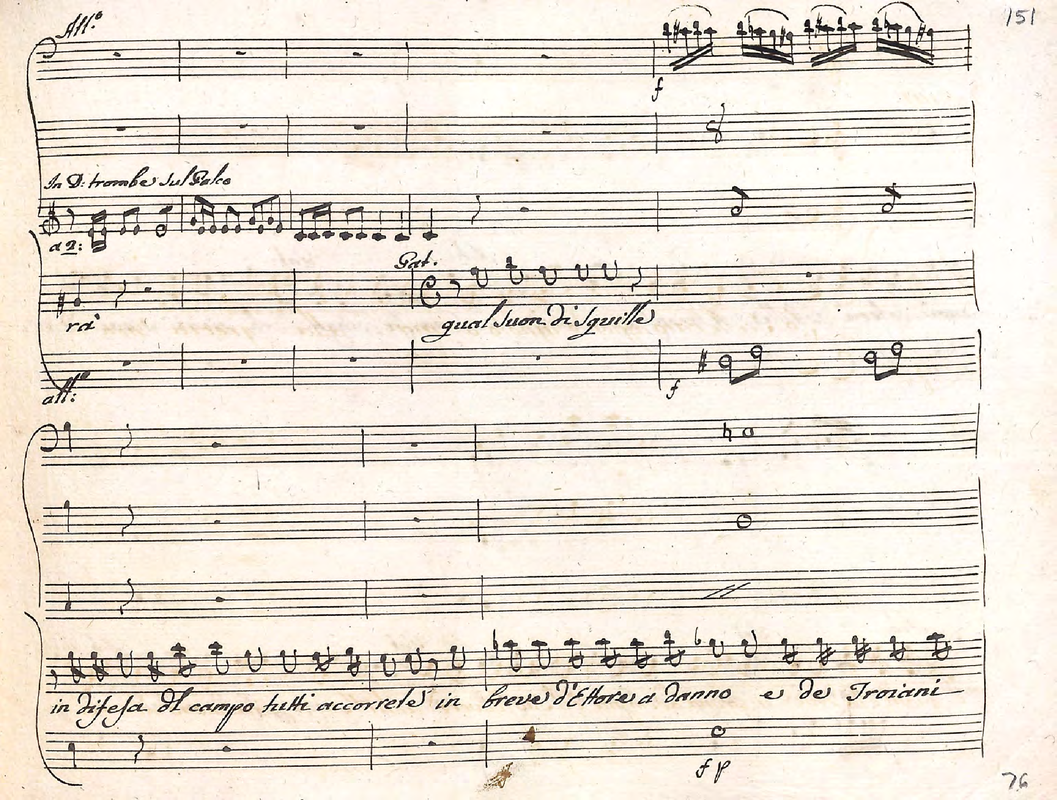 151
All.o
f
In D: trombe sul Palco
a 2:
Pat.
rà
qual suon di squille
f
all:o
in difesa dl campo tutti accorrete in breve d'Ettore a danno e de Troiani
f p
76